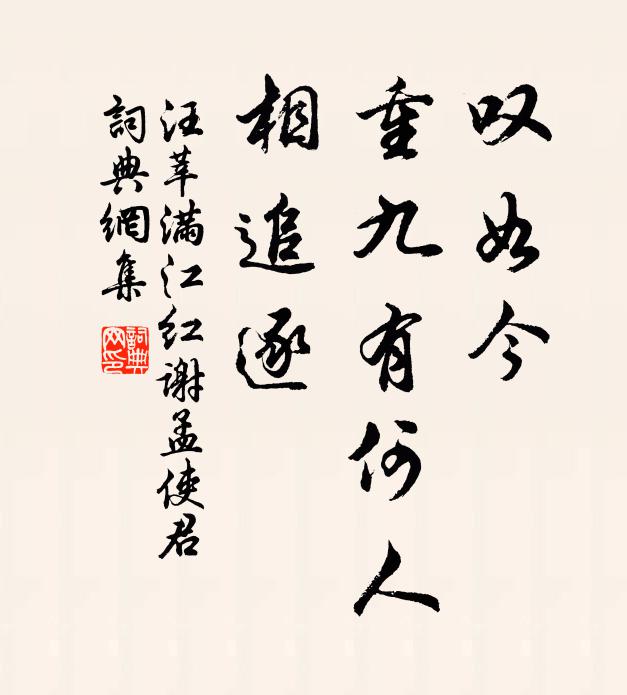 叹如今
重九有何人
相追逐
汪莘满江红谢孟使君
詞典網集
詞典网印